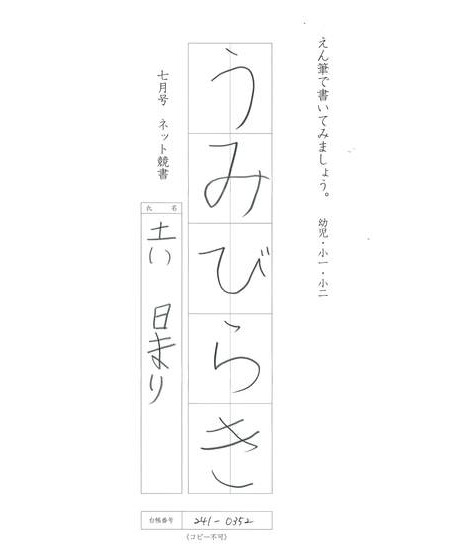 えん筆で書いてみましょう。 幼児・小一・小二
うみびらき
七月号 ネット競書
氏名
土い 日まり
台帳番号 241-0352
(コピー不可)